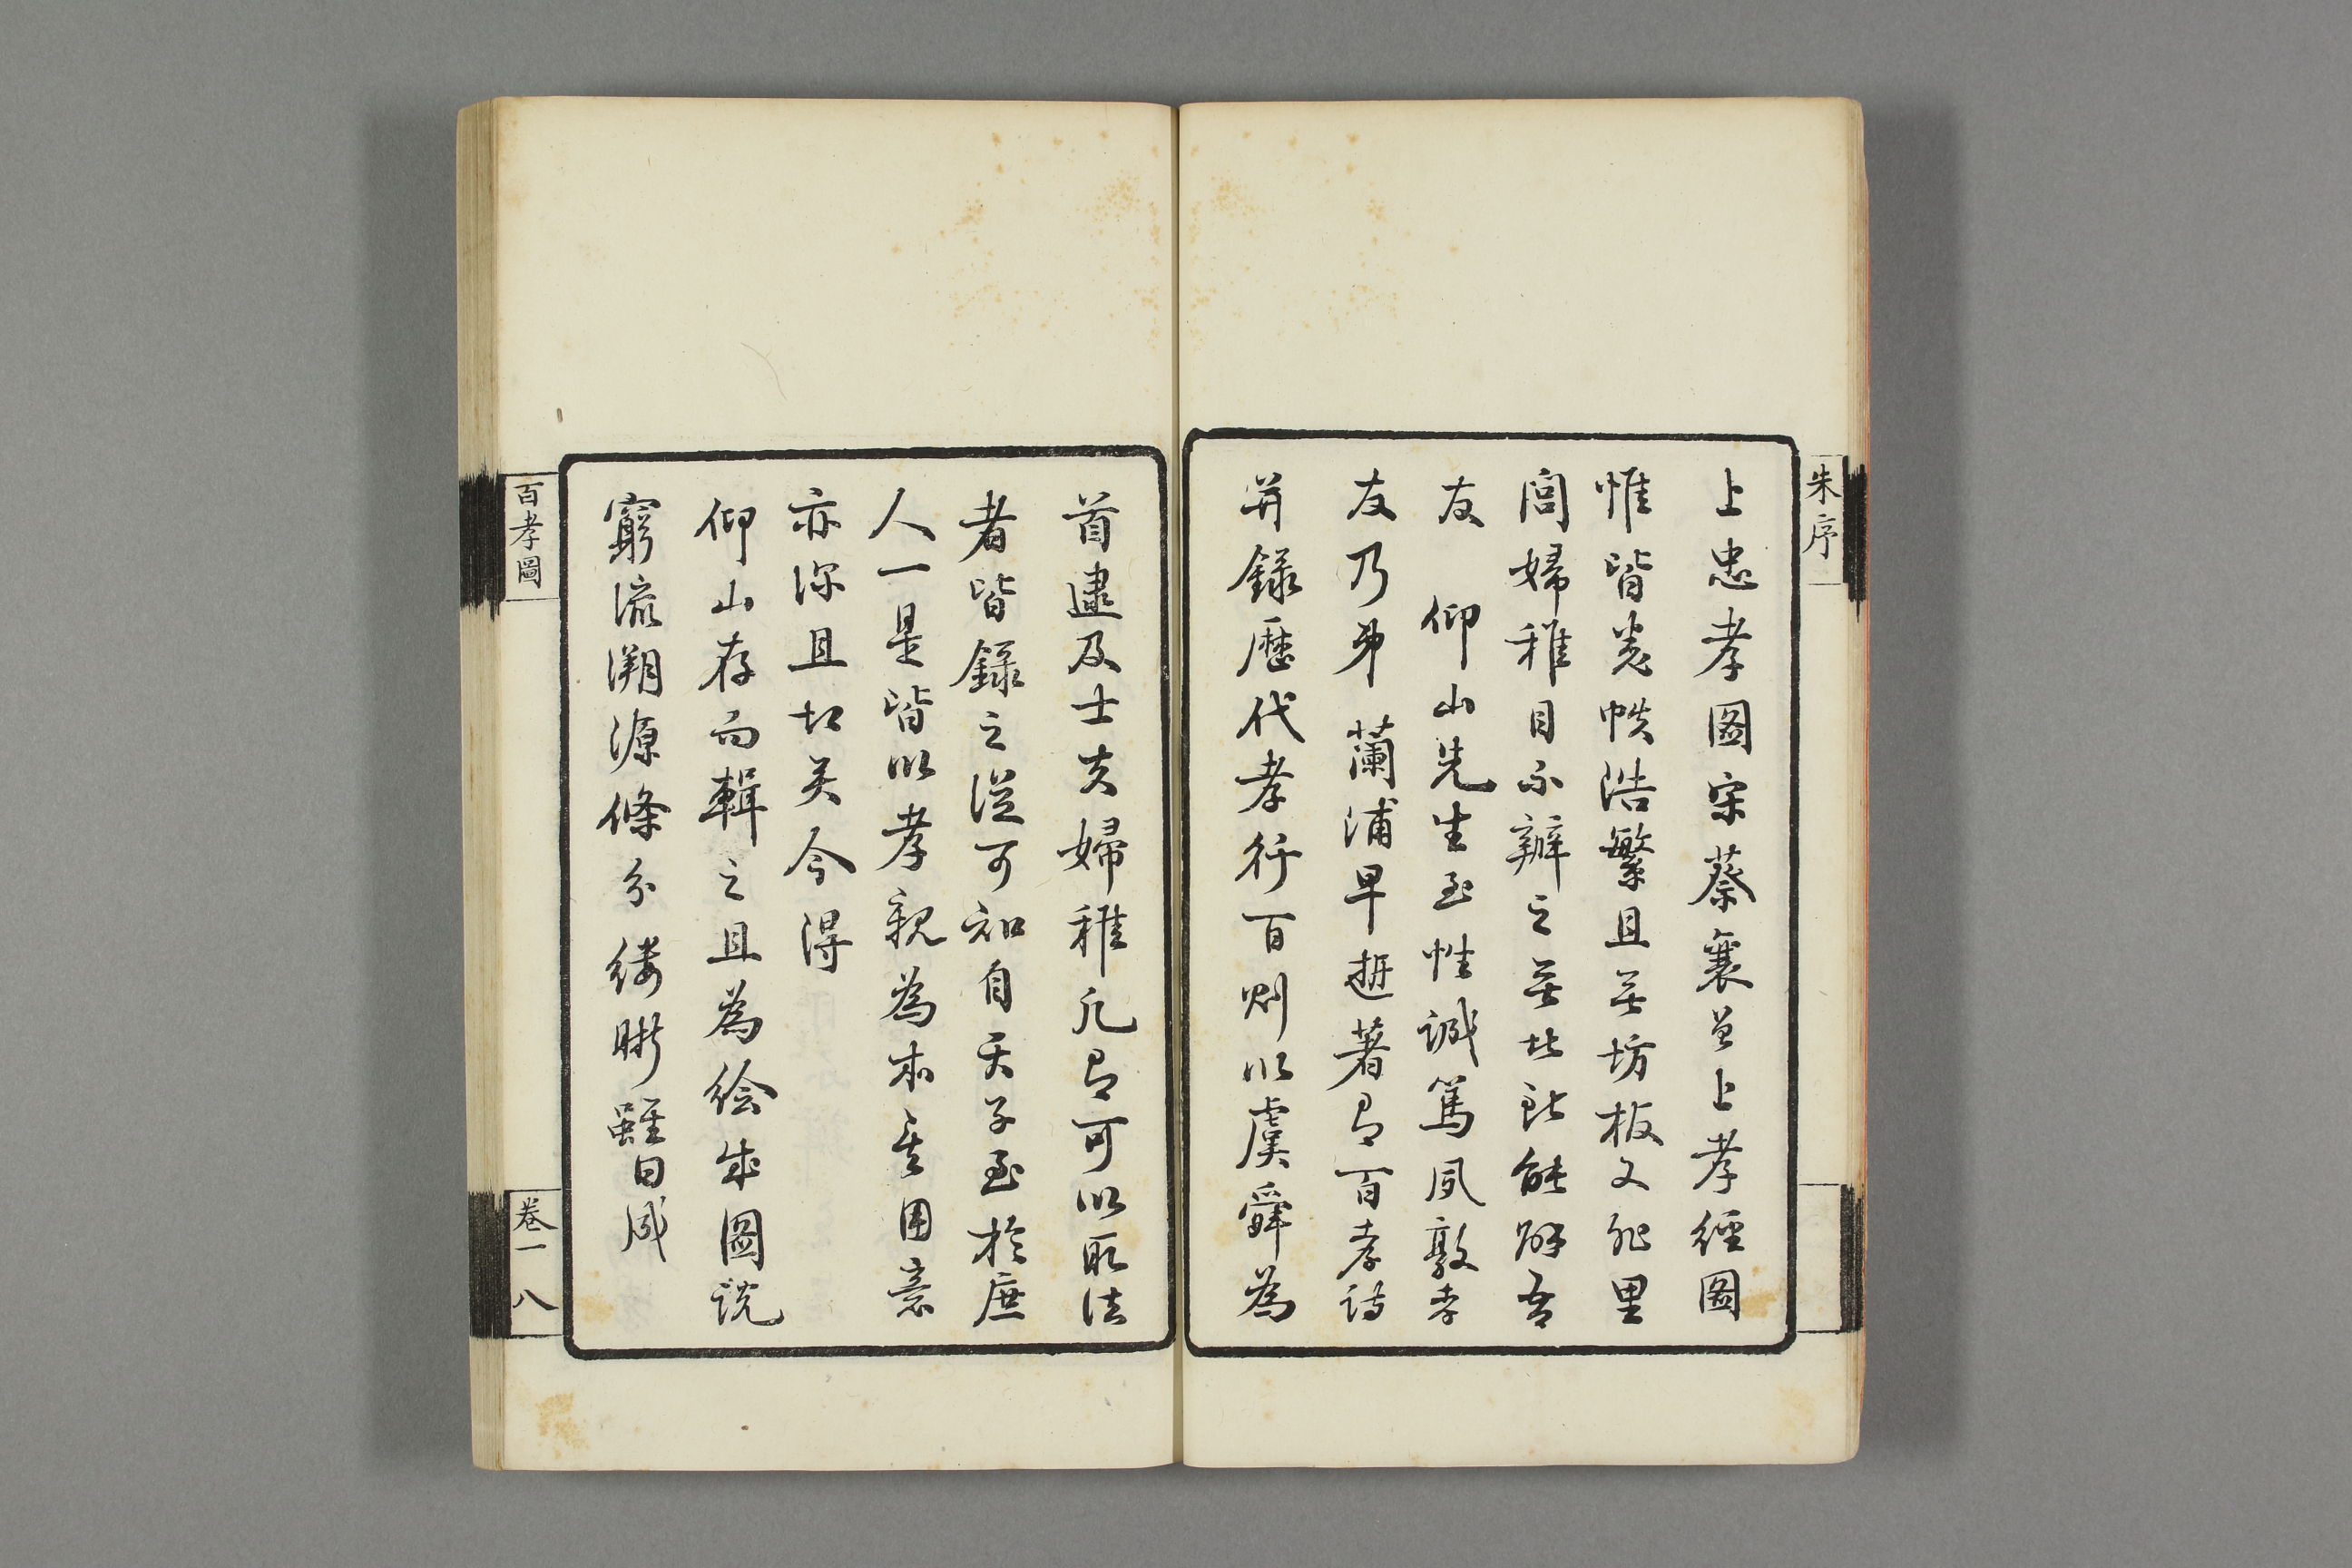 朱序
上忠孝圖宋蔡襄曾上孝經圖
惟皆卷帙浩繁且無坊板又非里
閭婦稚目不辦之無者所能解吾
友仰山先生至性誠篤夙敦孝
友乃弟蘭浦早逝著有百孝詩
并錄歷代孝行百則以虞舜為
首逮及士夫婦稚凡有可以取法
者皆錄之從可知自天子至於庶
人一是皆以孝親為本其用意
亦深且切矣今得
仰山存而輯之且為绘成圖說
窮流溯源條分縷晰雖日咸
百孝圖
卷一
八